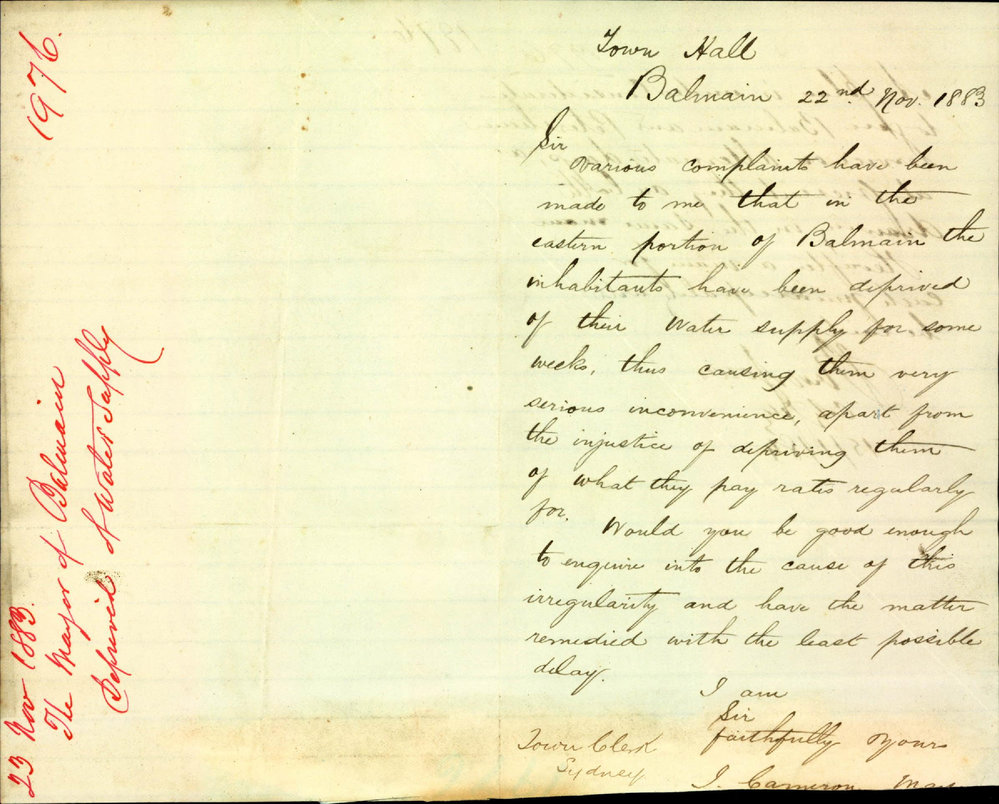 1976.
23 Nov 1883.
The Mayor of Balmain
Deprived of Water Supply
Town Hall
Balmain 22nd Nov. 1883
Sir
Various complaints have been
made to me that in the
eastern portion of Balmain the
inhabitants have been deprived
of their Water supply for some
weeks, thus causing them very
serious inconvenience, apart from
the injustice of depriving them
of what they pay rates regularly
for.
Would you be good enough
to enquire into the cause of this
irregularity and have the matter
remedied with the least possible
delay.
I am
Sir
faithfully yours
J. Cameron
Town Clerk
Sydney